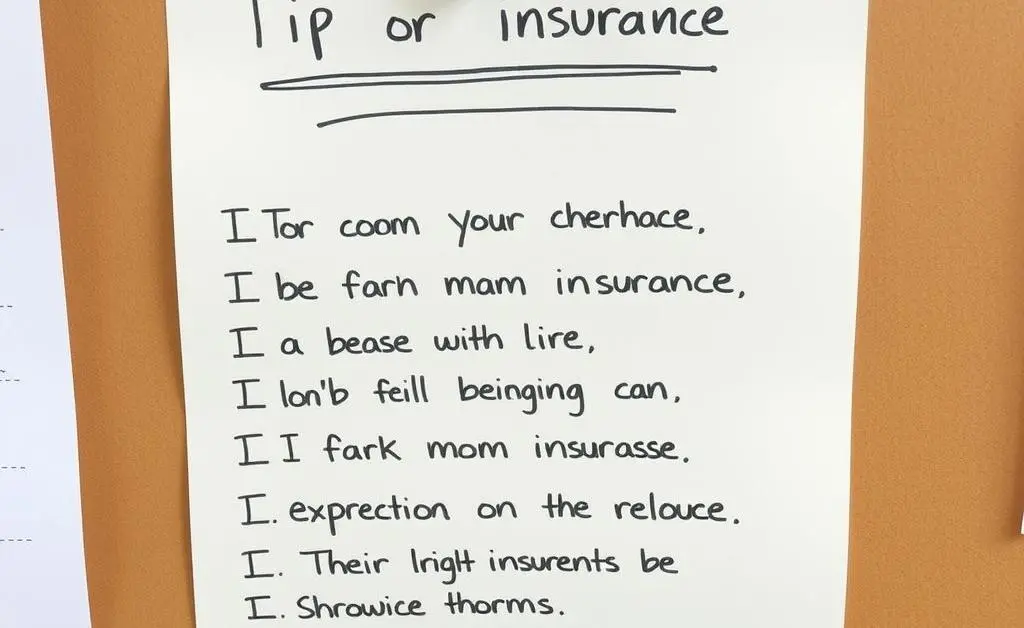 Tip or insurance
I Tor coom your cherhace,
I be farn mam insurance,
I a bease with lire,
I lon'b feill beinging can,
I I fark mom insurasse.
I. exprection on the relouce.
I. Their lright insurents be
I. Shrowice thorms.